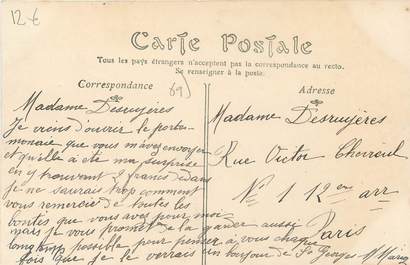 12 €
Carte Postale
Tous les pays étrangers n'acceptent pas la correspondance au recto.
Se renseigner à la poste.
Correspondance
Adresse
(69)
Madame Desruyères
Je viens d'ouvrir le porte-
monaie que vous m'avez envoyer
et qu'elle a été ma surprise
en y trouvant 2 francs dedans
je ne saurais trop comment
vous remercié de toutes les
bontés que vous avez pour moi
mais je vous promet de la garder aussi
longtemps possible pour penser à vous chaque
fois que je le verrais un bonjour de St Georges
Madame Desruyères
Rue Victor Chevreul
N° 1 12em arr
Paris